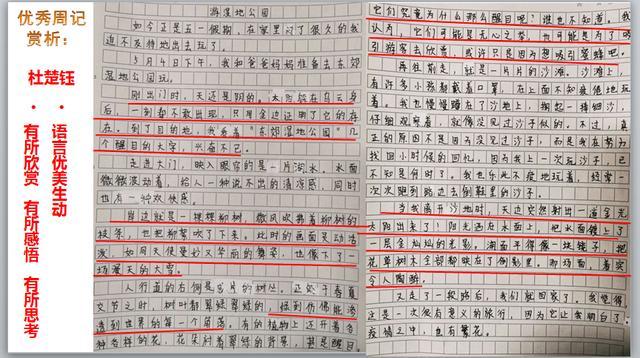 优秀周记
赏析：
杜楚钰
·语言优美生动
·有所欣赏 有所感悟 有所思考
游湿地公园
如今正是五一假期，在家里闷了很久的我
迫不及待地出去玩了。
5月4日下午，我和爸爸妈妈准备去东郊
湿地公园玩。
刚出门时，天还是阴的。太阳躲在白云身
后，一刻都不敢出现，只用金边证明了它的存
在。到了目的地，我看着“东郊湿地公园”几
个醒目的大字，兴奋不已。
走进大门，映入眼帘的是一片湖水。水面
微微波动着，给人一种说不出的清凉感，同时
也有一种欢快感。
岸边就是一棵棵柳树，微风吹拂着柳树的
枝条，也把柳絮吹了下来。此时的画面灵动活
泼，如同天使曼妙又华丽的舞姿，也像下了一
场漫天的大雪。
人行道的右侧是茂片的树丛。正处于春夏
交节之时，树叶都翠绿翠绿的，绿到仿佛能渗
透到世界的每一个角落。有的植物上还开着各
种各样的花，花朵衬着翠绿的背景，甚是醒目
它们究竟为什么那么醒目呢？谁也不知道。我
认为，它们可能是无心之举，也可能是为了吸
引游客去欣赏，或许只是因为想吸引蜜蜂吧。
再往前走，就是一片片的沙滩。沙滩上，
有许多小孩都戴着口罩，在上面不知疲倦地玩
着。我也慢慢蹲在了沙地上，掬起一捧细沙，
仔细观察着，就像没见过沙子似的。不过，真
正的原因不是因为没见过沙子，而是我在努力
找回小时候的回忆，因为我上一次玩沙子，已
不知是何时了。我也乐此不疲地玩着，经常一
次次跑到路边去倒鞋里的沙子。
当我离开沙地时，天边突然射出一道金光
太阳出来了！阳光洒在水面上，把水面镀上了
一层金灿灿的光影，湖面平得像一块镜子，把
花草树木全部都映在了倒影里。那场面，着实
令人陶醉。
又走了一段路后，我们就回家了。我觉得
这是一次很有意义的旅行，因为它让我明白了
疫情之中，也有繁花。